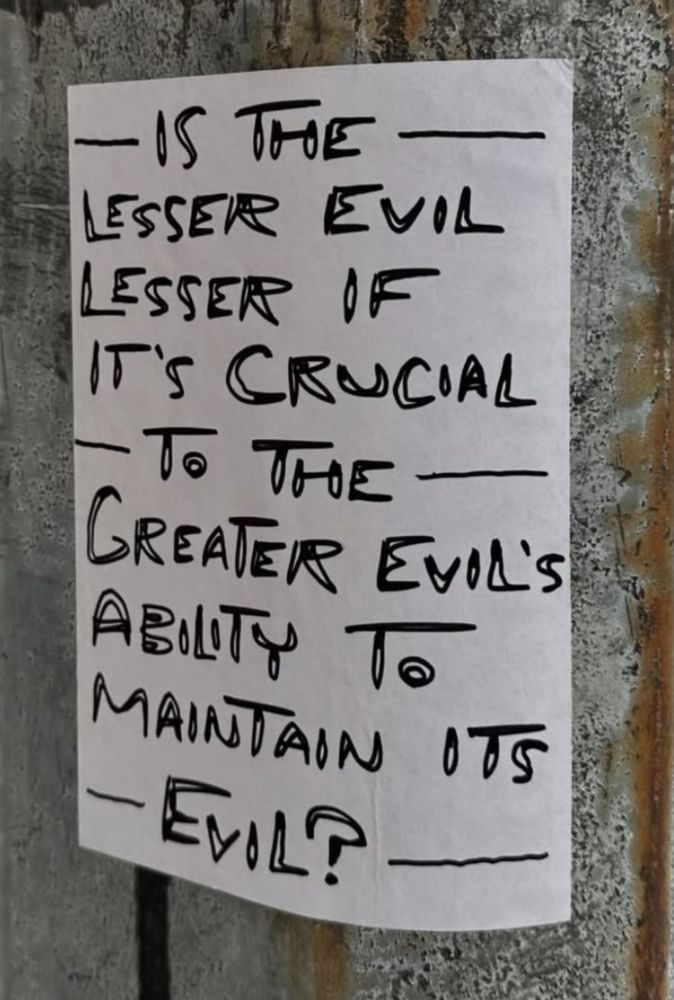 IS THE
LESSER EVIL
LESSER IF
IT'S CRUCIAL
TO THE
GREATER EVIL'S
ABILITY TO
MAINTAIN ITS
EVIL?